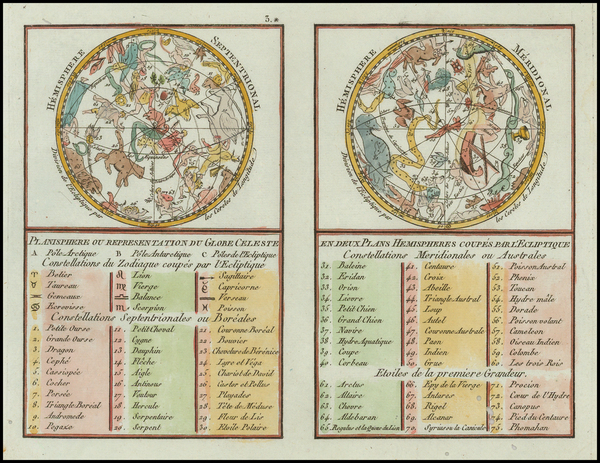 3.
HÉMISPHERE SEPTENTRIONAL
Division de l'Ecliptique par les Cercles de Longitude
HÉMISPHERE MÉRIDIONAL
Division de l'Ecliptique par les Cercles de Longitude
PLANISPHERE OU REPRESENTATION DU GLOBE CELESTE
A Pôle Arctique B Pôle Antarctique C Pôles de l'Ecliptique
Constellations du Zodiaque coupés par l'Ecliptique
♈ Belier ♌ Lion ♐ Sagittaire
♉ Taureau ♍ Vierge ♑ Capricorne
♊ Gemeaux ♎ Balance ♒ Verseau
♋ Ecrevisse ♏ Scorpion ♓ Poisson
Constellations Septentrionales ou Boréales
1. Petite Ourse 11. Petit Cheval 21. Couronne Boréal
2. Grande Ourse 12. Cygne 22. Bouvier
3. Dragon 13. Dauphin 23. Chevelure de Bérénice
4. Cephé 14. Flêche 24. Lyre et Véga
5. Cassiopée 15. Aigle 25. Chariot de David
6. Cocher 16. Antinous 26. Castor et Pollux
7. Persée 17. Vautour 27. Playades
8. Triangle Boréal 18. Hercule 28. Tête de Méduse
9. Andromede 19. Serpentaire 29. Fleur de Lis
10. Pegaze 20. Serpent 30. Etoile Polaire
EN DEUX PLANS HEMISPHERES COUPÉS PAR L'ECLIPTIQUE
Constellations Meridionales ou Australes
31. Baleine 41. Centaure 51. Poisson Austral
32. Eridan 42. Croix 52. Phenix
33. Orion 43. Abeille 53. Toucan
34. Lievre 44. Triangle Austral 54. Hydre mâle
35. Petit Chien 45. Loup 55. Dorade
36. Grand Chien 46. Autel 56. Poisson volant
37. Navire 47. Couronne Australe 57. Cameleon
38. Hydre Aquatique 48. Paon 58. Oiseau Indien
39. Coupe 49. Indien 59. Colombe
40. Corbeau 50. Grue 60. Les trois Rois
Etoiles de la premiere Grandeur.
61. Arctus 66. Epy de la Vierge 71. Procion
62. Altaire 67. Antares 72. Cœur de l'Hydre
63. Chevre 68. Rigel 73. Canopus
64. Aldebaran 69. Alcanar 74. Pied du Centaure
65. Regulus et la queue du Lion 70. Syrius ou la Canicule 75. Phomahan